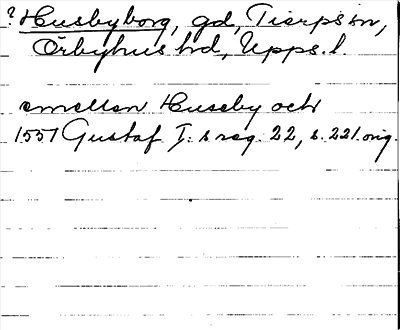 ? Husbyborg, gd, Tierps sn,
Örbyhus hd, Upps. l.
emellan Huseby och
1551 Gustaf I:s reg. 22, s. 221. orig.